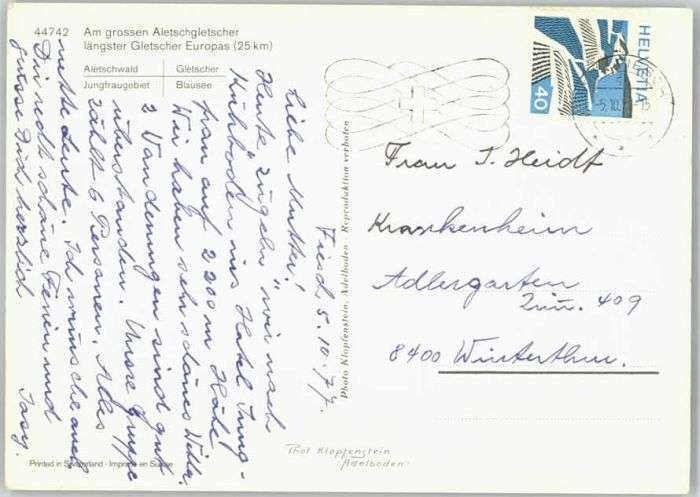 44742 Am grossen Aletschgletscher
längster Gletscher Europas (25 km)
Aletschwald Gletscher
Jungfraugebiet Blausee
HELVETIA
40
-5.10.
Fiesch, 5.10.77.
Liebe Mutter!
Heute "zügeln" wir nach
Kühboden ins Hotel Jung-
frau auf 2200 m Höhe.
Wir haben sehr schönes Wetter.
2 Wanderungen sind gut
überstanden. Unsre Gruppe
zählt 6 Personen. Alles
nette Leute. Ich wünsche auch
Dir recht schöne Ferien und
grüsse Dich herzlich
Frau S. Heidt
Krankenheim
Adlergarten
Zim. 409
8400 Winterthur.
Photo Klopfenstein, Adelboden - Reproduktion verboten
Phot Klopfenstein
Adelboden
Printed in Switzerland - Imprimé en Suisse